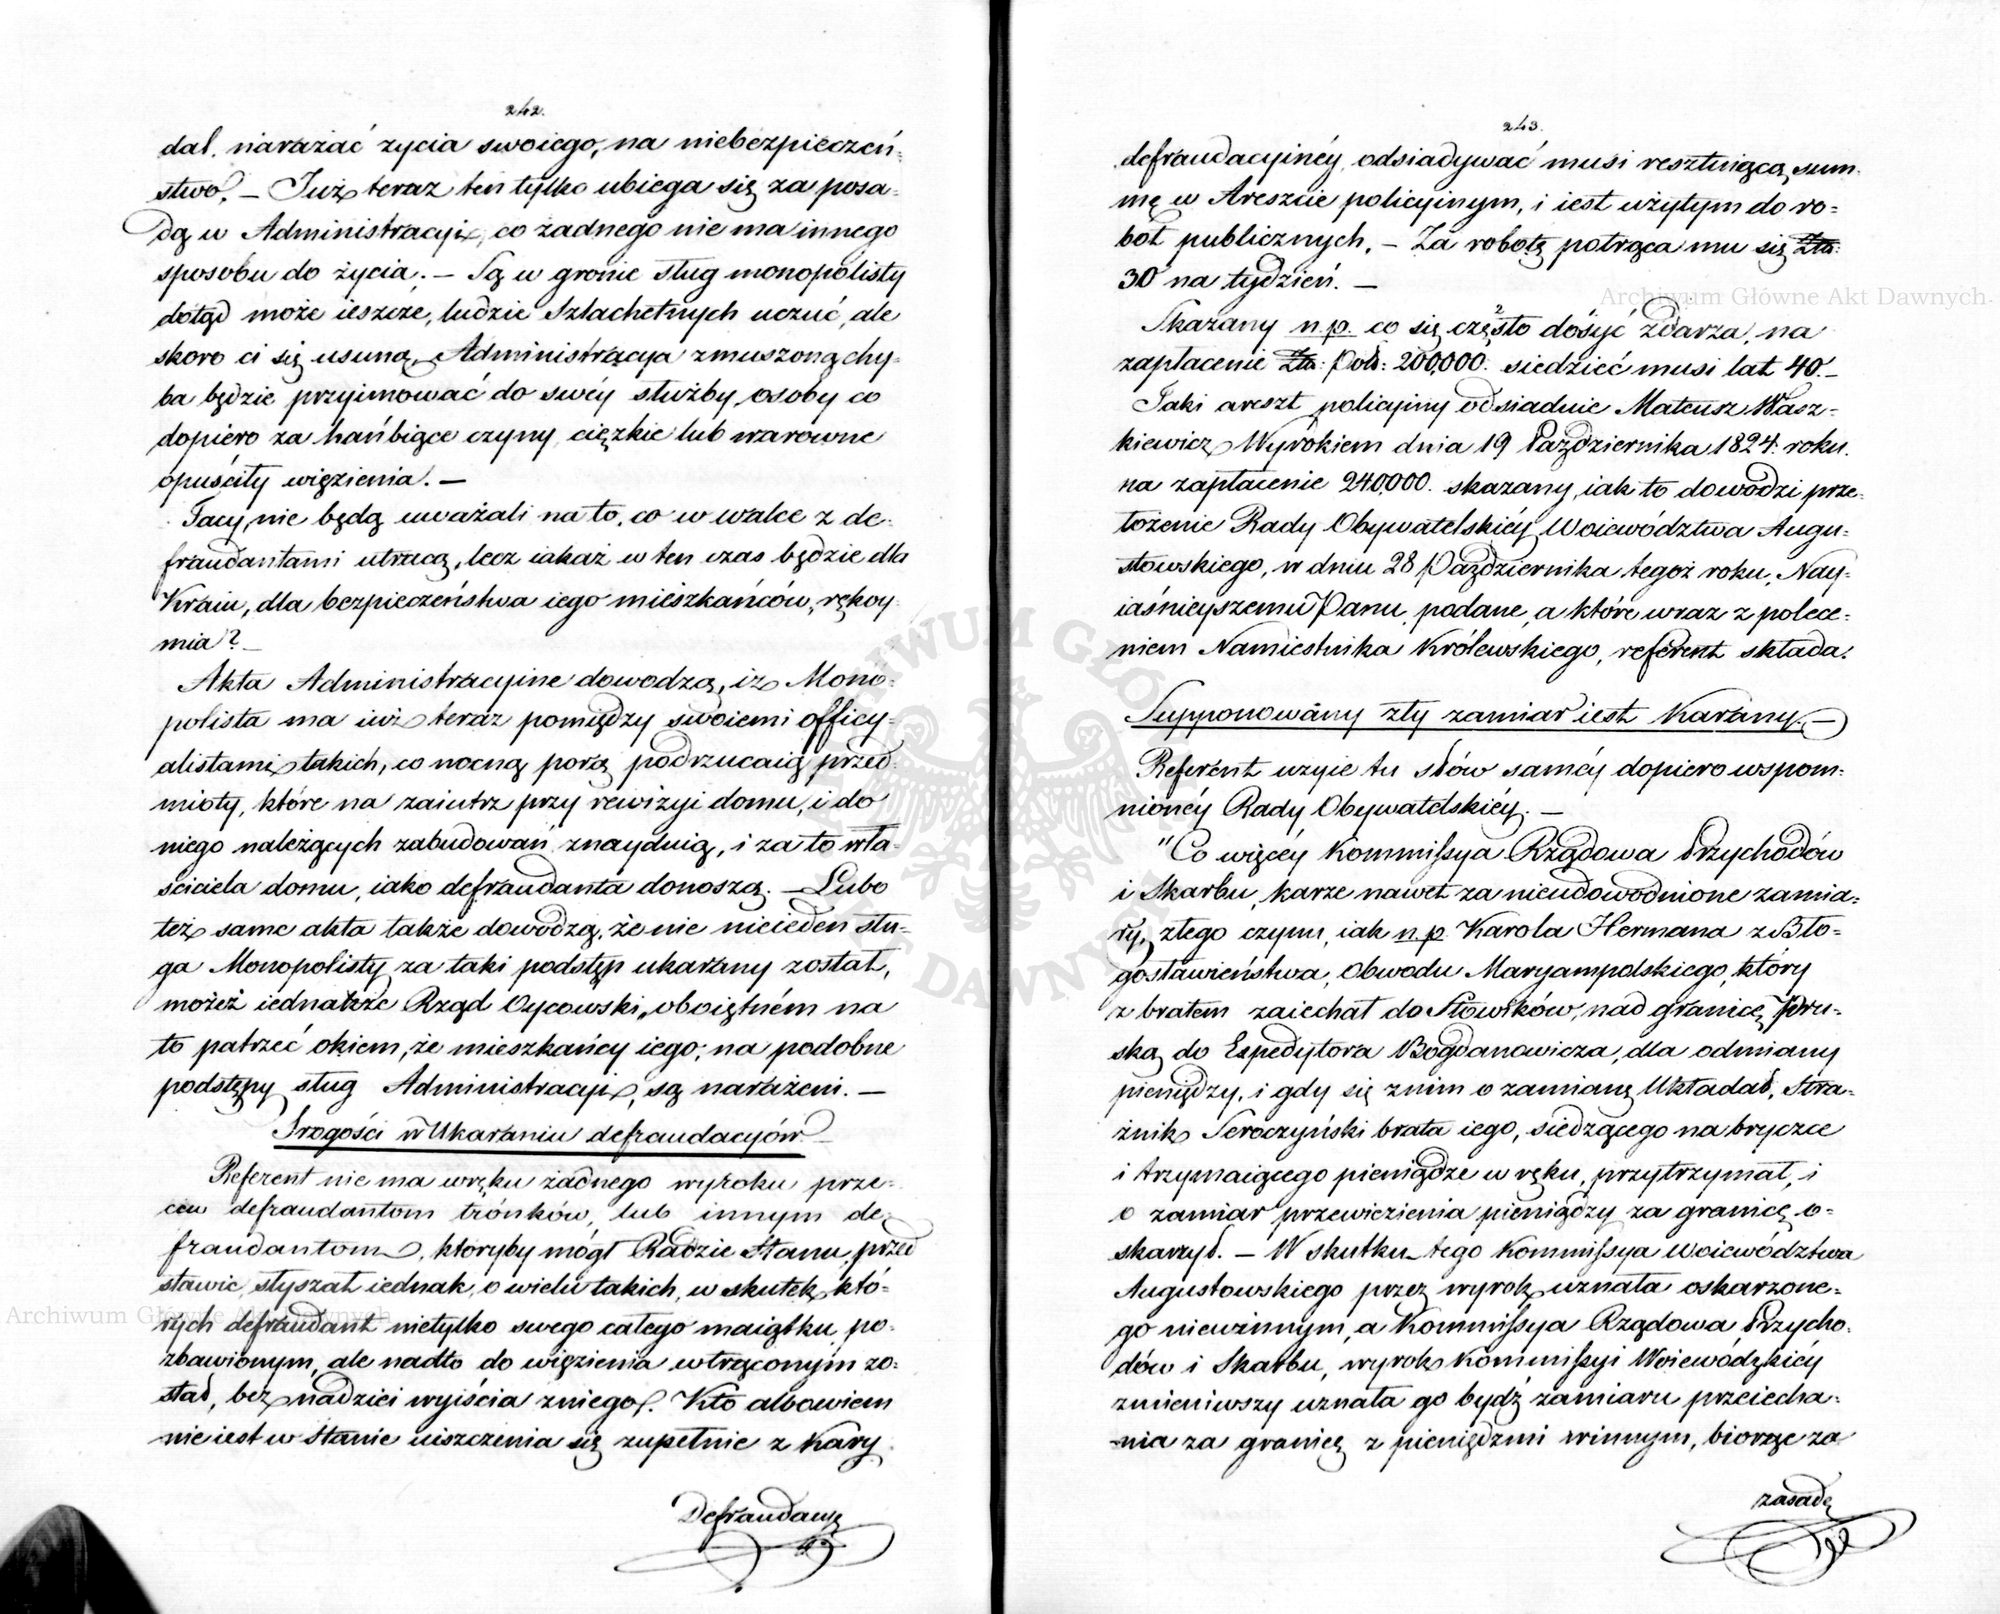 242.
dał. narażać życia swoiego, na niebezpieczeń-
stwo? — Już teraz ten tylko ubiega się za posa-
dą w Administracyi, co żadnego nie ma innego
sposobu do życia. — Są w gronie sług monopolisty
dotąd może ieszcze, ludzie szlachetnych uczuć, ale
skoro ci się usuną, Administracya zmuszoną chy-
ba będzie przyimować do swéy służby osoby co
dopiero za hańbiące czyny, ciężkie lub warowne
opuściły więzienia. —
Tacy, nie będą uważali na to, co w walce z de-
fraudantami utracą, lecz iakaż w ten czas będzie dla
Kraiu, dla bezpieczeństwa iego mieszkańców, rękoy-
mia? —
Akta Administracyine dowodzą, iż Mono-
polista ma iuż teraz pomiędzy swoiemi officy-
alistami takich, co nocną porą podrzucaią przed-
mioty, które na zaiutrz przy rewizyi domu, i do
niego należących zabudowań znayduią, i za to wła-
ściciela domu, iako defraudanta donoszą. — Lubo
też same akta także dowodzą, że nie nieieden słu-
ga Monopolisty za taki podstęp ukarany został,
możeż iednakże Rząd Oycowski, oboiętném na
to patrzeć okiem, że mieszkańcy iego, na podobne
podstępy sług Administracyi, są narażeni. —
Srogości w Ukaraniu defraudacyów. —
Referent nie ma w ręku żadnego wyroku prze-
ciw defraudantom trónków, lub innym de-
fraudantom, któryby mógł Radzie Stanu przed
stawić, słyszał iednak, o wielu takich, w skutek któ-
rych defraudant nietylko swego całego maiątku po-
zbawionym, ale nadto do więzienia wtrąconym zo-
stał, bez nadziei wyiścia z niego. Kto albowiem
nie iest w stanie uiszczenia się zupełnie z Kary
Defraudacyi
243.
defraudacyinéy, odsiadywać musi resztuiącą sum-
mę w Areszcie policyinym, i iest użytym do ro-
bót publicznych. — Za robotę potrąca mu się Złt:
30 na tydzień. —
Skazany n.p. co się często dosyć zdarza, na
zapłacenie Złt: Pol: 200,000. siedzieć musi lat 40. —
Taki areszt policyiny odsiaduie Mateusz Wasz-
kiewicz Wyrokiem dnia 19 Października 1824. roku.
na zapłacenie 240,000. skazany, iak to dowodzi prze-
łożenie Rady Obywatelskiéy Woiewództwa Augu-
stowskiego, w dniu 28 Października tegoż roku, Nay-
iaśnieyszemu Panu, podane, a które wraz z polece-
niem Namiestnika Królewskiego, referent składa.
Supponowany zły zamiar iest Karany. —
Referent użyie tu słów saméy dopiero wspom-
nionéy Rady Obywatelskiéy. —
"Co więcéy Kommissya Rządowa Przychodów
i Skarbu, karze nawet za nieudowodnione zamia-
ry, złego czynu, iak n.p. Karola Hermana z Bło-
gosławieństwa, Obwodu Maryampolskiego, który
z bratem zaiechał do Słowików, nad granicę Pru-
ską do Expedytora Bogdanowicza, dla odmiany
pieniędzy, i gdy się z nim o zamianę Układał, Stra-
żnik Seroczyński brata iego, siedzącego na bryczce
i trzymaiącego pieniądze w ręku, przytrzymał, i
o zamiar przewiezienia pieniędzy za granicę o-
skarżył. — W skutku tego Kommissya woiewództwa
Augustowskiego przez wyrok uznała oskarżone-
go niewinnym, a Kommissya Rządowa Przycho-
dów i Skarbu, wyrok Kommissyi Woiewódzkiéy
zmieniwszy uznała go bydź zamiaru przeiecha-
nia za granicę z pieniędzmi winnym, biorąc za
zasadę
Archiwum Główne Akt Dawnych
Archiwum Główne Akt Dawnych
ARCHIWUM GŁÓWNE AKT DAWNYCH